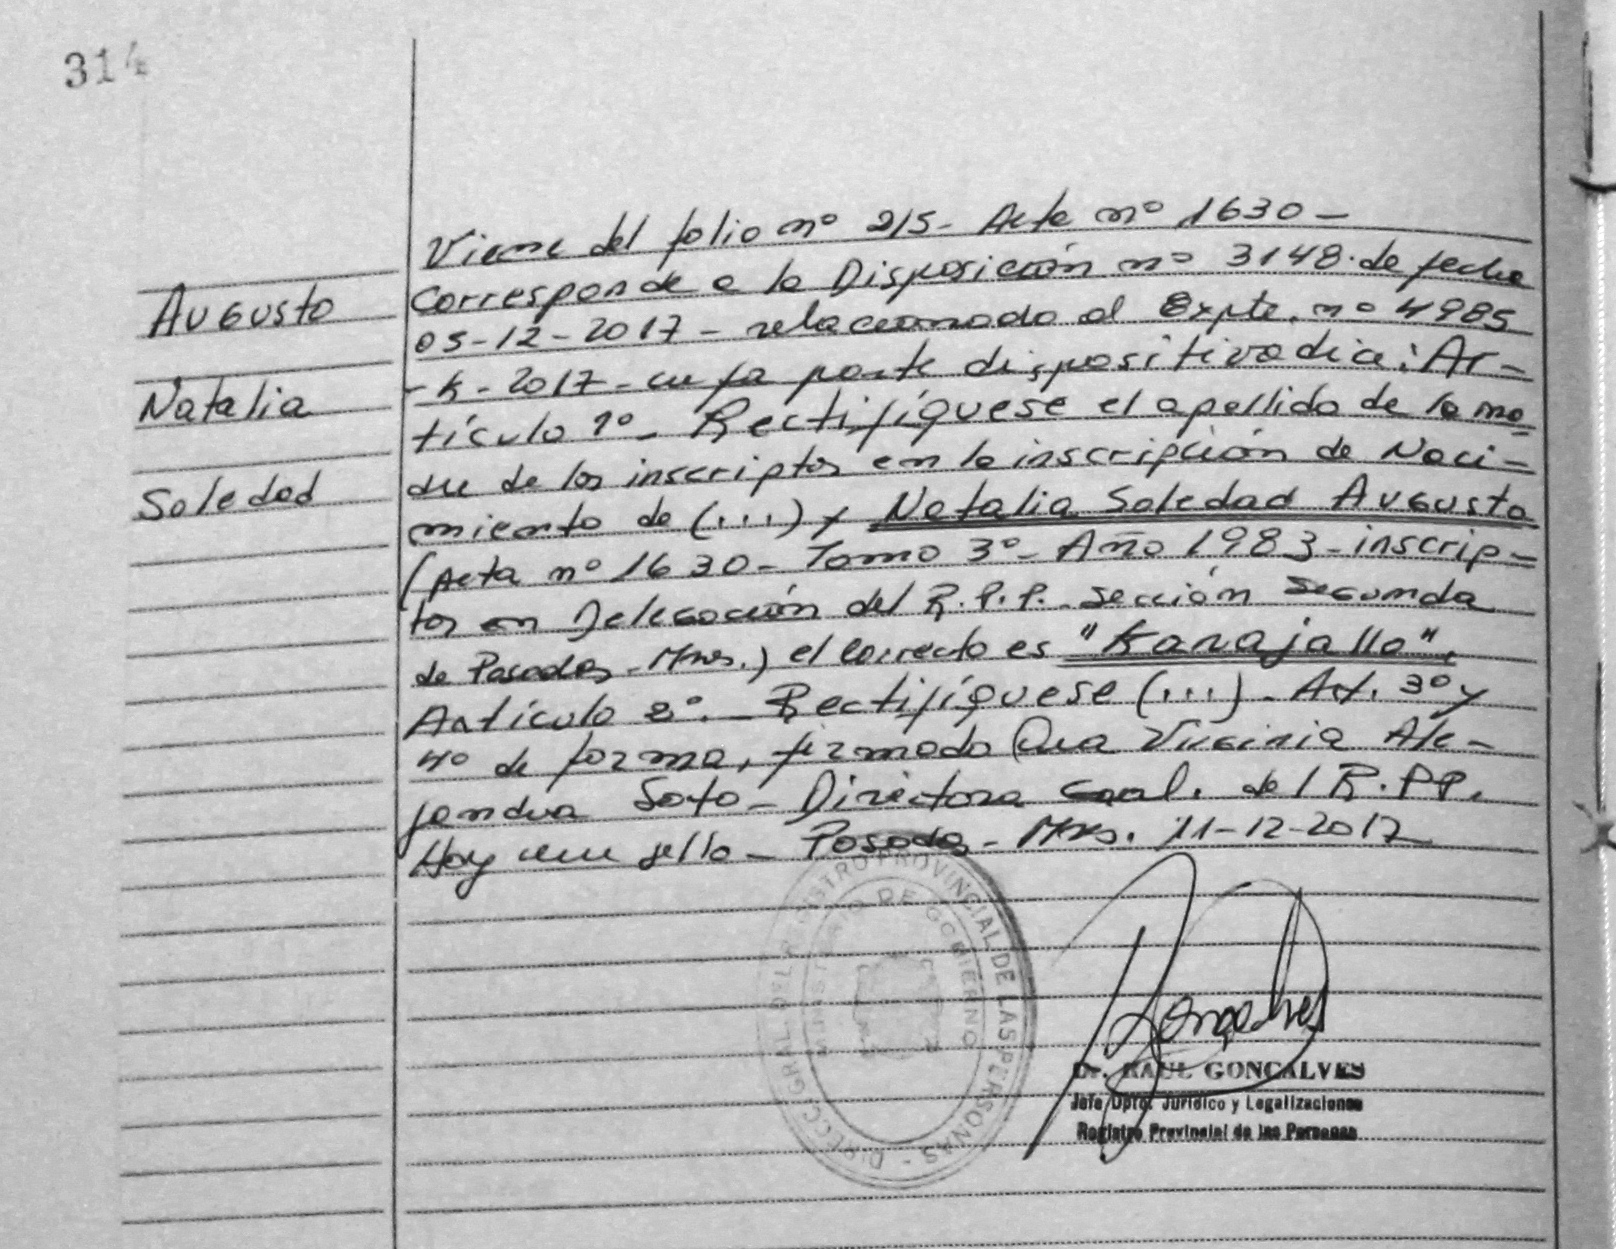 314
Augusto
Natalia
Soledad
Viene del folio nº 215- Acta nº 1630-
Corresponde a la Disposición nº 3148. de fecha
05-12-2017- relacionado al Expte. nº 4985
-K-2017- cuya parte dispositiva dice: Ar-
tículo 1º- Rectifíquese el apellido de la ma-
dre de los inscriptos en la inscripción de Naci-
miento de (...) y Natalia Soledad Augusto
(Acta nº 1630- Tomo 3º- Año 1983- inscrip-
tos en Delegación del R.P.P. Sección Segunda
de Posadas- Mnes.) el correcto es "Karajallo".
Artículo 2º.- Rectifíquese (...)- Art. 3º y
4º de forma, firmado Dra Virginia Ale-
jandra Soto- Directora Gral. del R.PP.
Hay un sello- Posadas- Mnes. 11-12-2017
DIRECC. GRAL. DEL REGISTRO PROVINCIAL DE LAS PERSONAS -
MINISTERIO DE GOBIERNO
Dr. RAUL GONCALVES
Jefe Dpto. Jurídico y Legalizaciones
Registro Provincial de las Personas